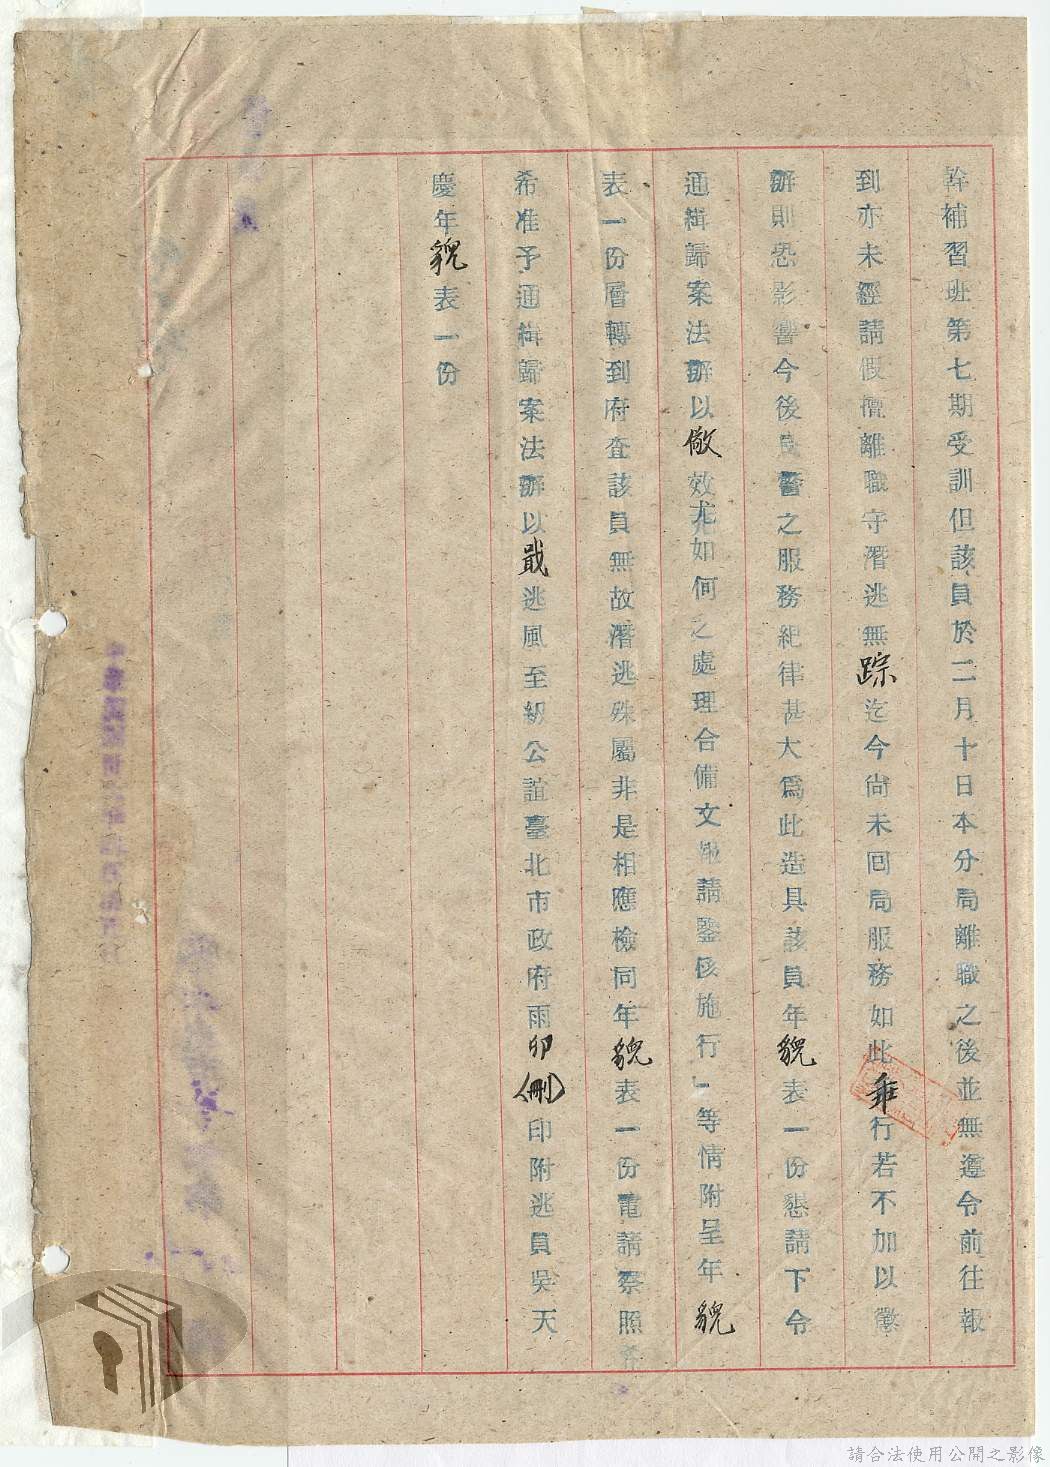 幹補習班第七期受訓但該員於二月十日本分局離職之後並無遵令前往報
到亦未經請假擅離職守潛逃無踪迄今尚未囘局服務如此乖行若不加以懲
辦則恐影響今後員警之服務紀律甚大爲此造具該員年貌表一份懇請下令
通緝歸案法辦以儆效尤如何之處理合備文電請鑒核施行」等情附呈年貌
表一份層轉到府查該員無故潛逃殊屬非是相應檢同年貌表一份電請察照
希准予通緝歸案法辦以戢逃風至紉公誼臺北市政府雨卯(刪)印附逃員吳天
慶年貌表一份
請合法使用公開之影像